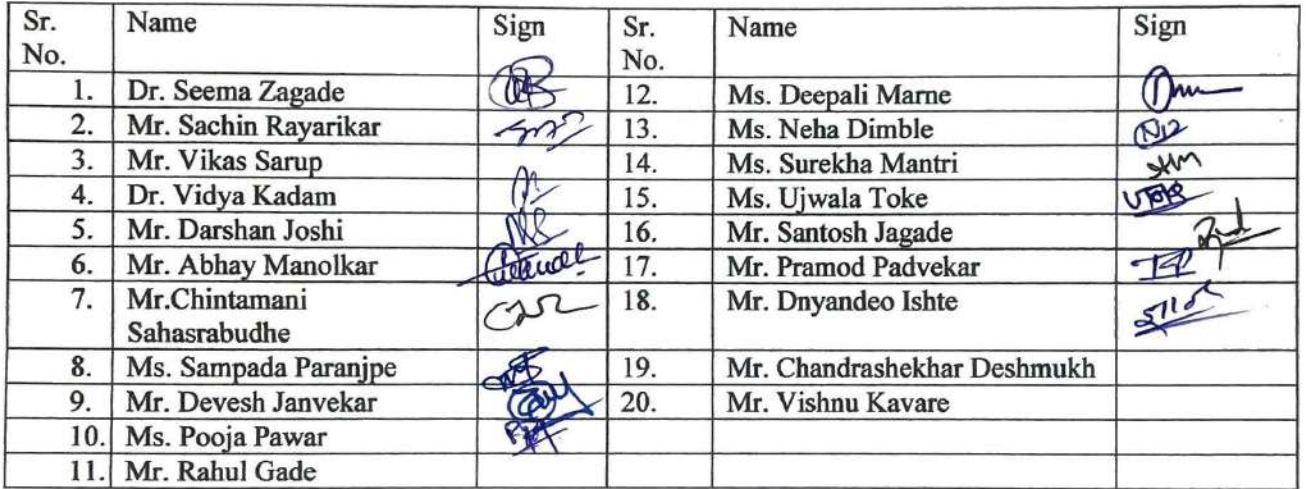 Sr. No. Name Sign Sr. No. Name Sign
1. Dr. Seema Zagade 12. Ms. Deepali Marne
2. Mr. Sachin Rayarikar 13. Ms. Neha Dimble
3. Mr. Vikas Sarup 14. Ms. Surekha Mantri
4. Dr. Vidya Kadam 15. Ms. Ujwala Toke
5. Mr. Darshan Joshi 16. Mr. Santosh Jagade
6. Mr. Abhay Manolkar 17. Mr. Pramod Padvekar
7. Mr.Chintamani Sahasrabudhe 18. Mr. Dnyandeo Ishte
8. Ms. Sampada Paranjpe 19. Mr. Chandrashekhar Deshmukh
9. Mr. Devesh Janvekar 20. Mr. Vishnu Kavare
10. Ms. Pooja Pawar
11. Mr. Rahul Gade